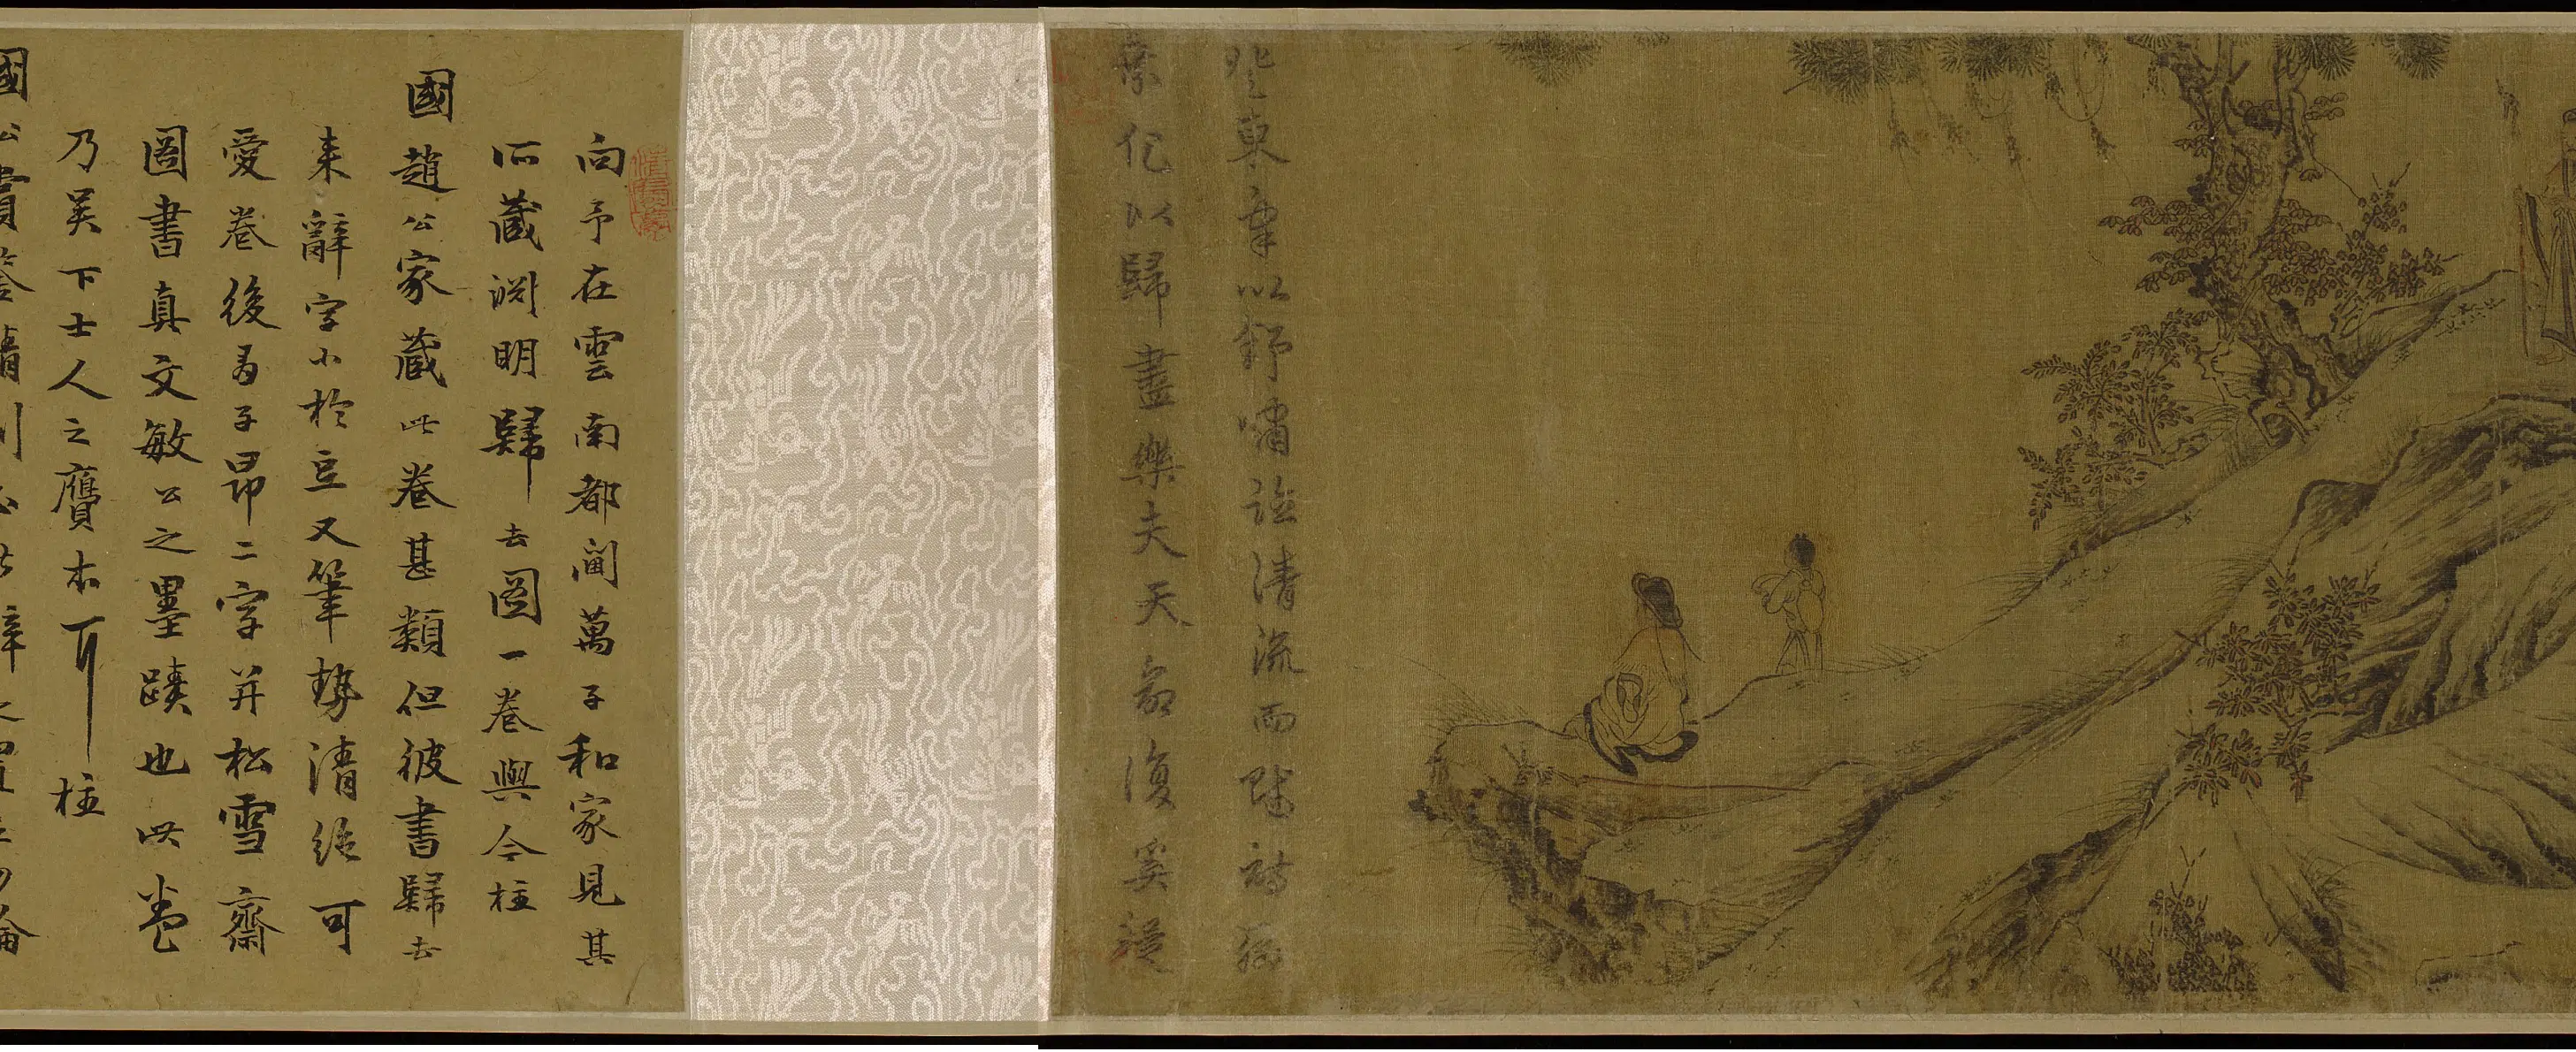 登東皋以舒嘯臨清流而賦詩聊
乘化以歸盡樂夫天命復奚疑
向予在雲南都閫萬子和家見其
所藏淵明歸去圖一卷與今柱
國趙公家藏此卷甚類但彼書歸去
来辭字小於豆又筆勢清絕可
愛卷後有子昂二字并松雪齋
圖書真文敏公之墨蹟也此卷
乃吳下士人之贗本耳柱
國公賞鑒精